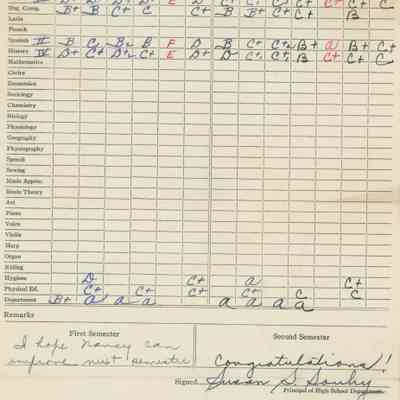 Eng. Comp. B+ B C+ C C+ B B+ C+ C+ B
Latin
French
Spanish II B C B2 B F D B C+ C+2 B+ a B+ C+
History IV D+ C+ D+2 C+ E D+ D C+2 C+2 B C+ C+ C
Mathematics
Civics
Economics
Sociology
Chemistry
Biology
Physiology
Geography
Physiography
Speech
Sewing
Music Apprec.
Music Theory
Art
Piano
Voice
Violin
Harp
Organ
Riding
Hygiene D C+ a C+
Physical Ed. C+ C+ C+ C C
Department B+ a a a a a a a
Remarks
First Semester Second Semester
I hope Nancy can
improve next semester Congratulations!
Signed Susan S. Souby
Principal of High School Department